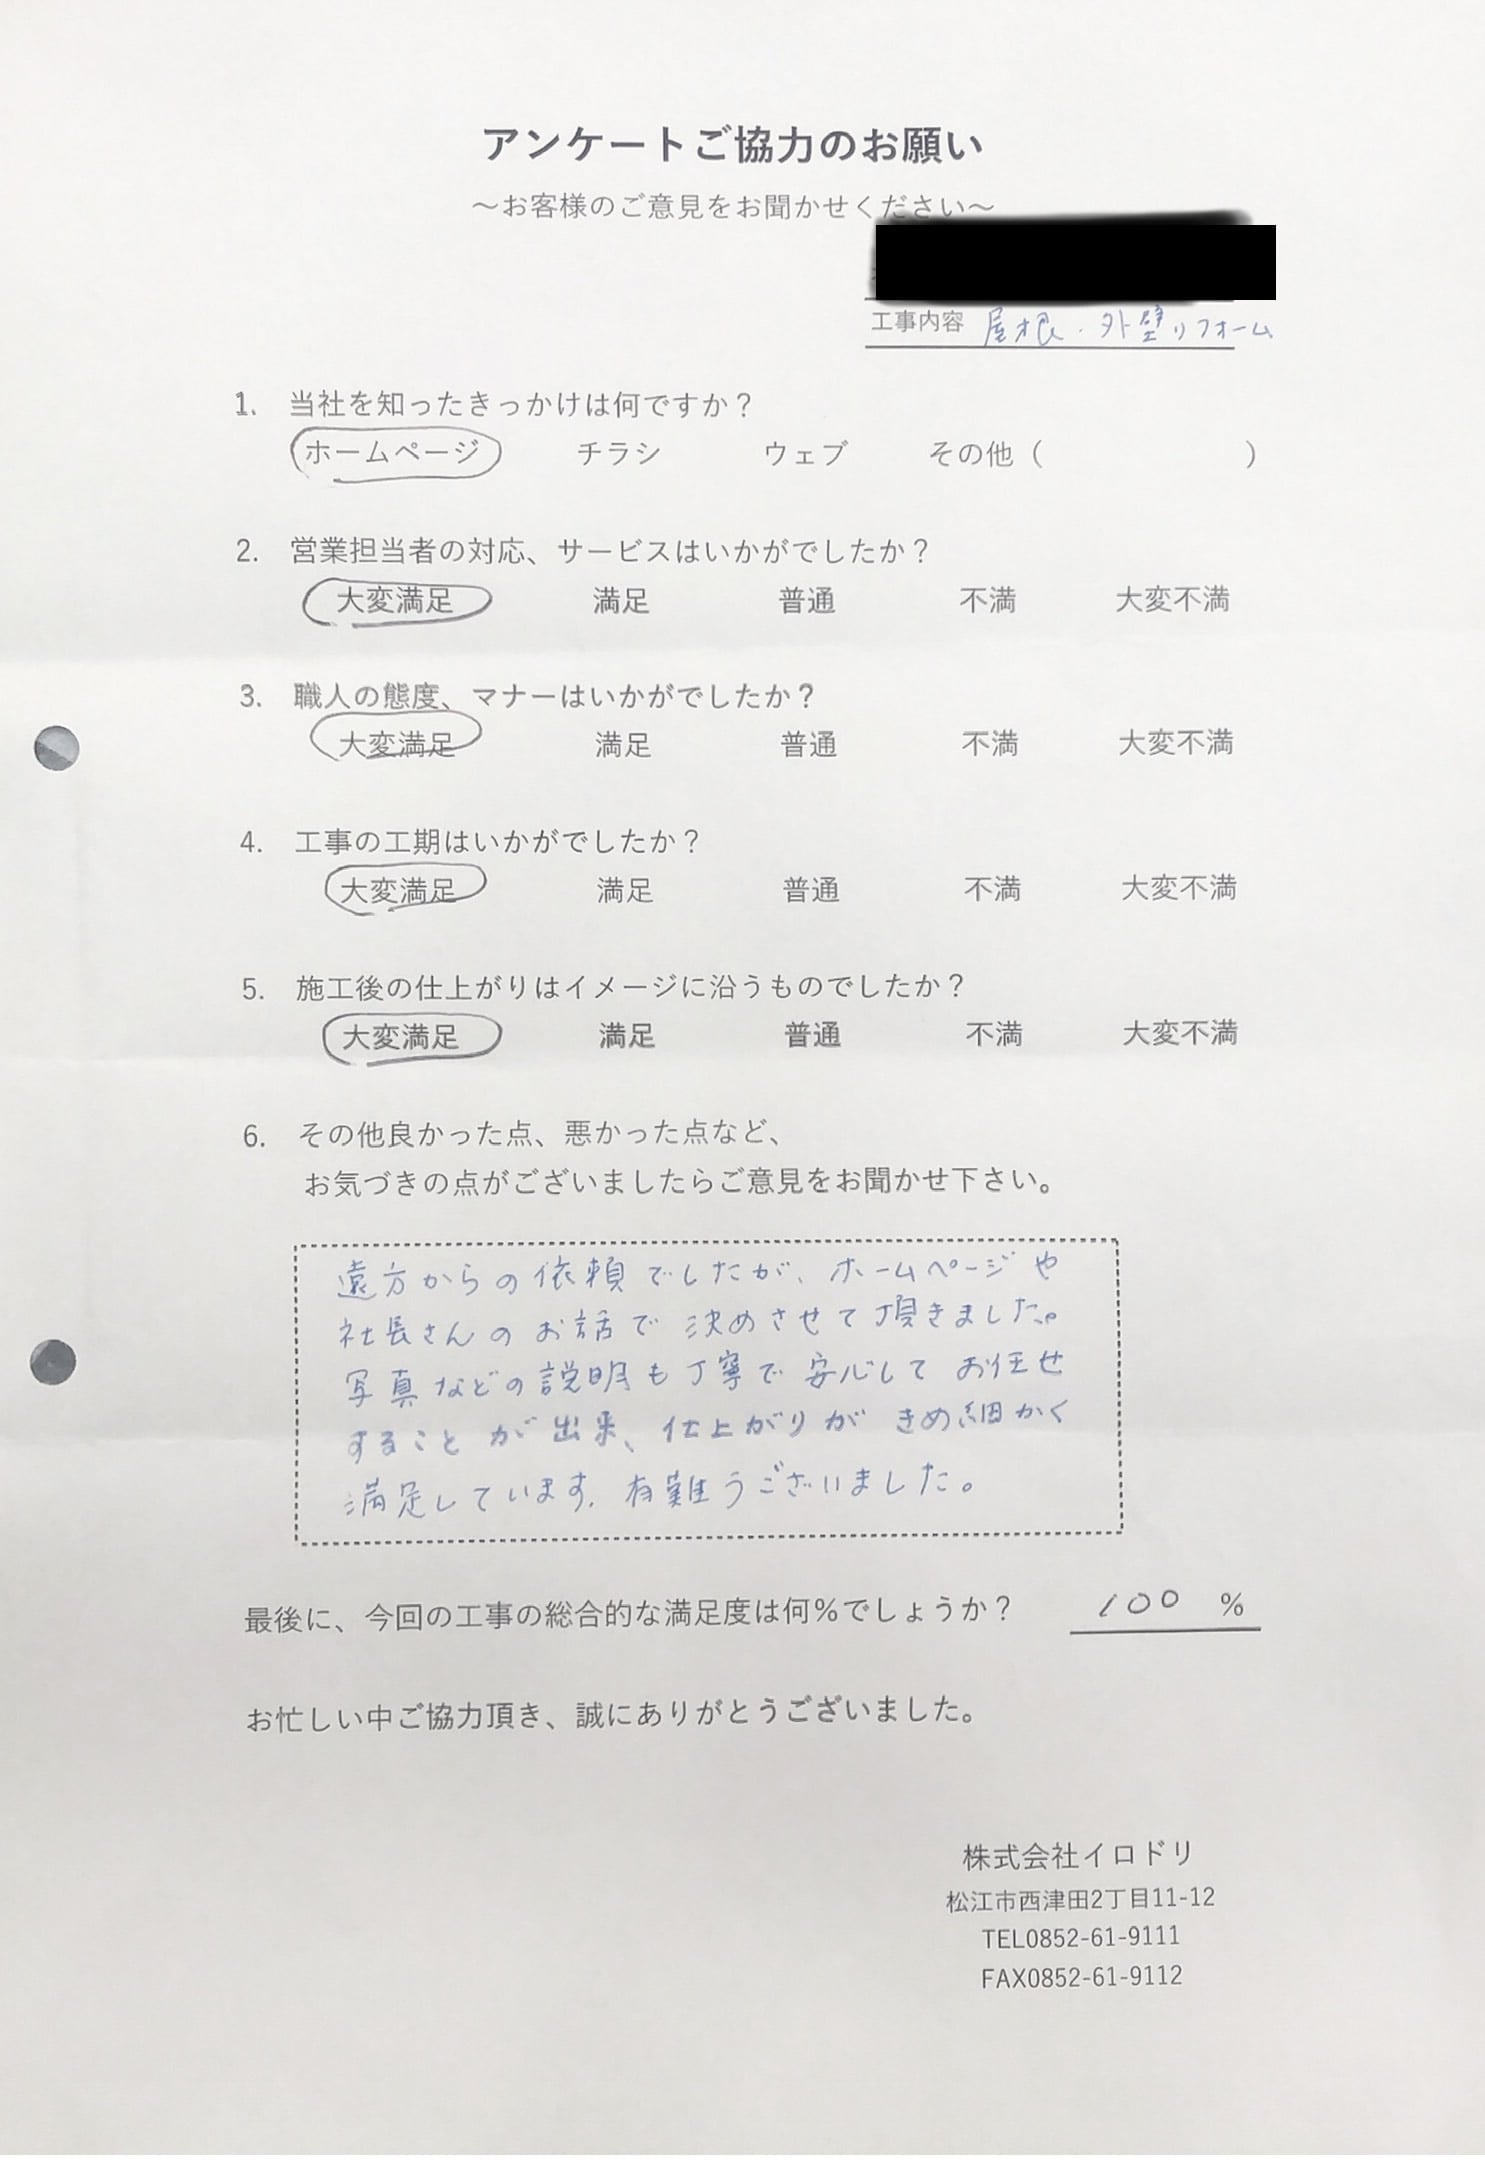 アンケートご協力のお願い
～お客様のご意見をお聞かせください～
工事内容 屋根・外壁リフォーム
1. 当社を知ったきっかけは何ですか？
ホームページ チラシ ウェブ その他（ ）
2. 営業担当者の対応、サービスはいかがでしたか？
大変満足 満足 普通 不満 大変不満
3. 職人の態度、マナーはいかがでしたか？
大変満足 満足 普通 不満 大変不満
4. 工事の工期はいかがでしたか？
大変満足 満足 普通 不満 大変不満
5. 施工後の仕上がりはイメージに沿うものでしたか？
大変満足 満足 普通 不満 大変不満
6. その他良かった点、悪かった点など、
お気づきの点がございましたらご意見をお聞かせ下さい。
遠方からの依頼でしたが、ホームページや
社長さんのお話で決めさせて頂きました。
写真などの説明も丁寧で安心してお任せ
することが出来、仕上がりがきめ細かく
満足しています。有難うございました。
最後に、今回の工事の総合的な満足度は何％でしょうか？ 100 %
お忙しい中ご協力頂き、誠にありがとうございました。
株式会社イロドリ
松江市西津田2丁目11-12
TEL0852-61-9111
FAX0852-61-9112